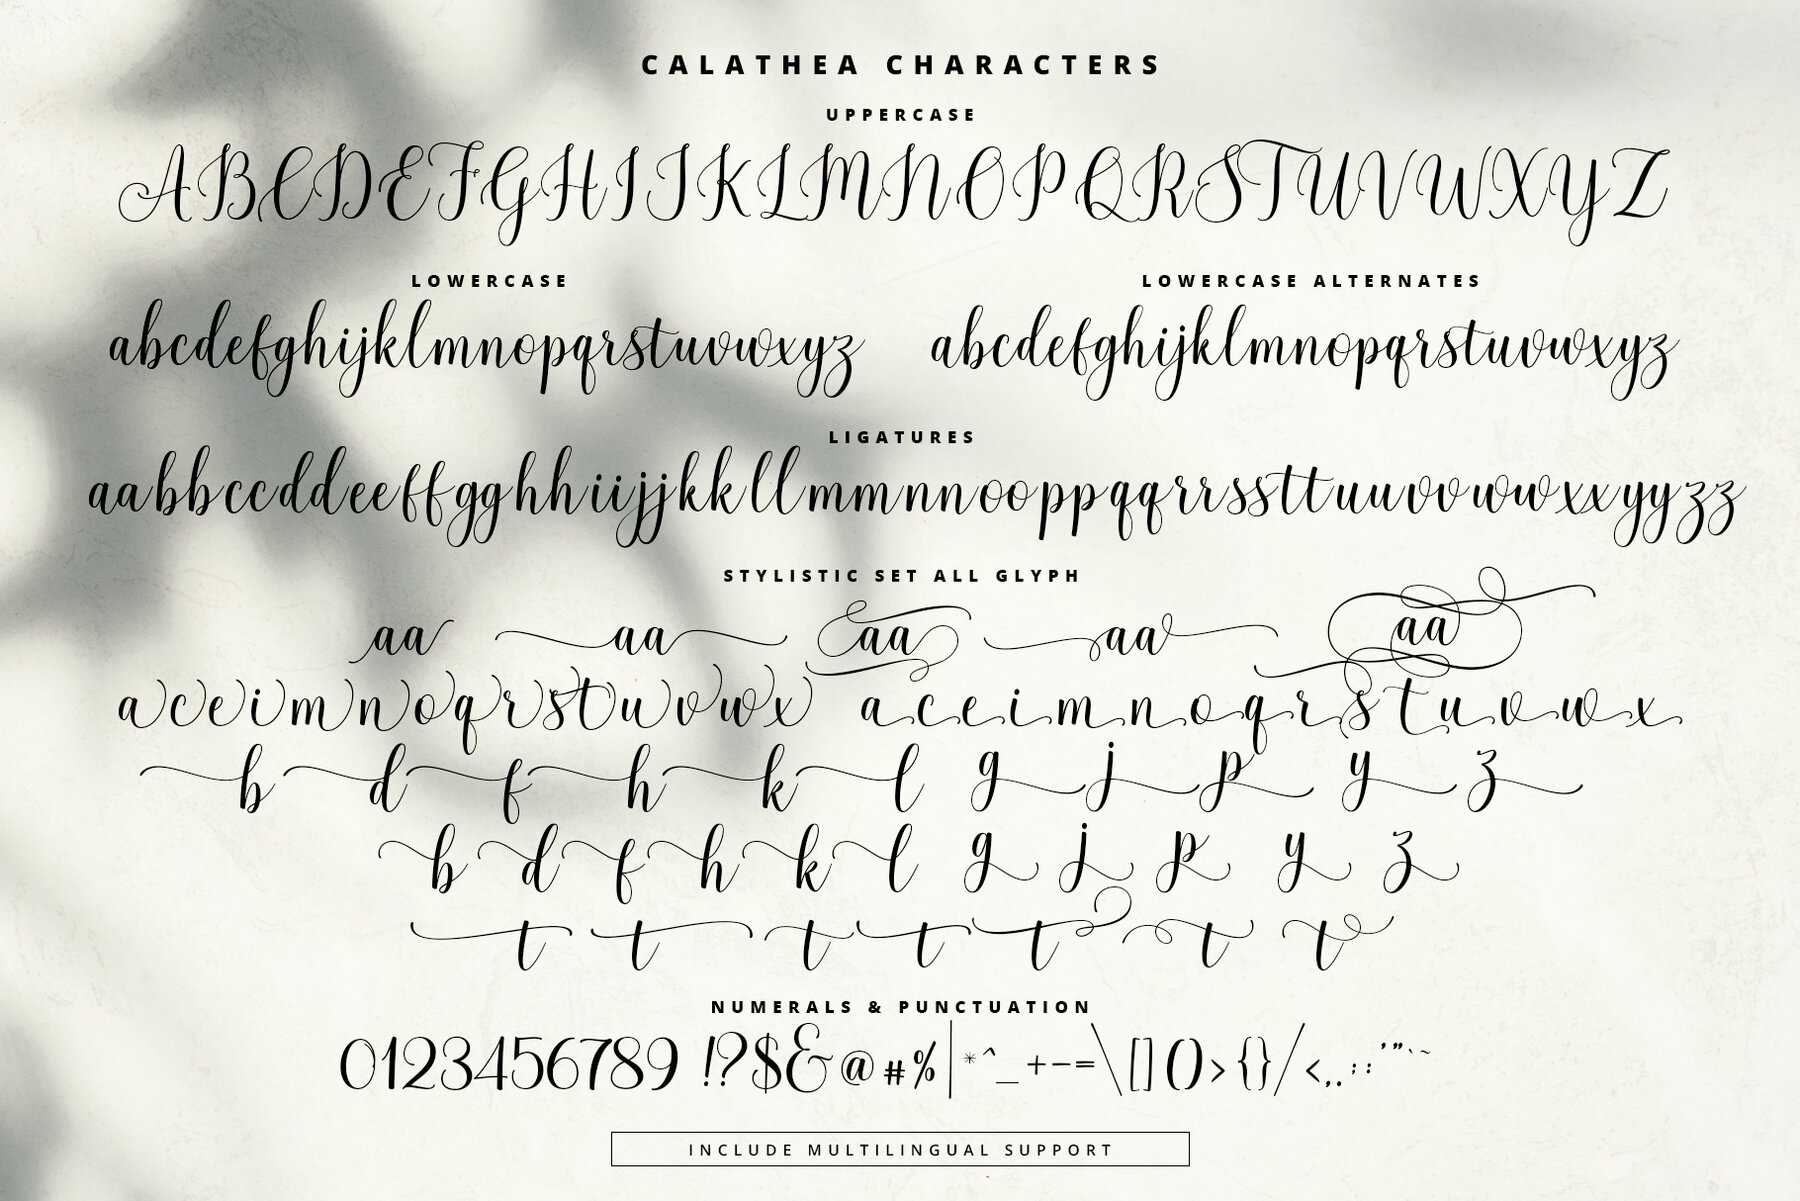 CALATHEA CHARACTERS
UPPERCASE
ABCDEFGHIJKLMNOPQRSTUVWXYZ
LOWERCASE
abcdefghijklmnopqrstuvwxyz
LOWERCASE ALTERNATES
abcdefghijklmnopqrstuvwxyz
LIGATURES
aabbccddeeffgghhiijjkkllmmnnooppqqrrssttuuvvwwxxyyzz
STYLISTIC SET ALL GLYPH
aa aa aa aa aa
aceimnoqrstuvwx aceimnoqrstuvwx
b d f h k l g j p y z
b d f h k l g j p y z
t t t t t t t
NUMERALS & PUNCTUATION
0123456789 !?$&@#%|*^_+-=\[]()>{}/<,.;:'"`~
INCLUDE MULTILINGUAL SUPPORT